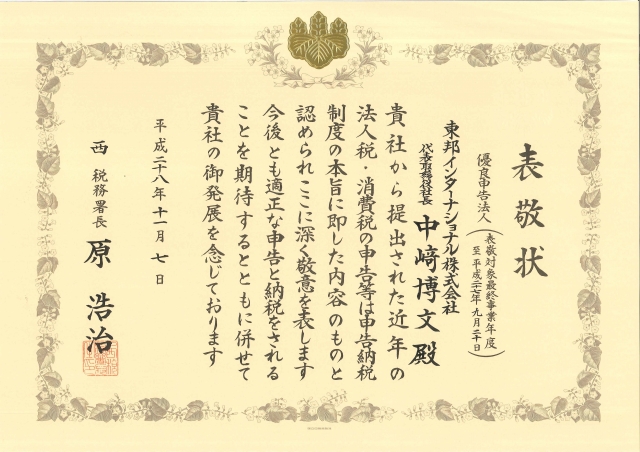 表敬状
優良申告法人（表敬対象最終事業年度
至 平成二七年 九月三十日）
東邦インターナショナル株式会社
代表取締役社長 中﨑博文 殿
貴社から提出された近年の
法人税・消費税の申告等は申告納税
制度の本旨に即した内容のものと
認められここに深く敬意を表します
今後とも適正な申告と納税をされる
ことを期待するとともに併せて
貴社の御発展を念じております
平成二八年十一月 七 日
西 税務署長 原 浩治